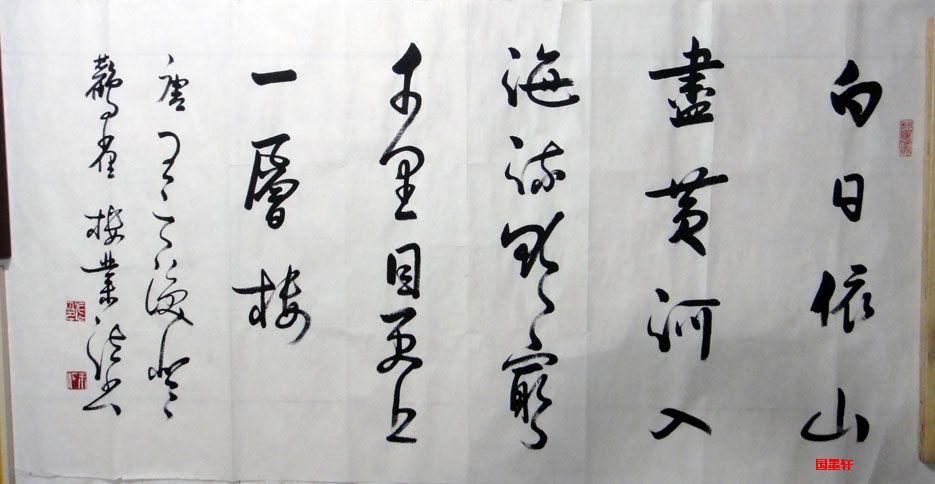 白日依山
盡黄河入
海流欲窮
千里目更上
一層樓
唐王之渙登
鸛雀樓業法书
国墨轩